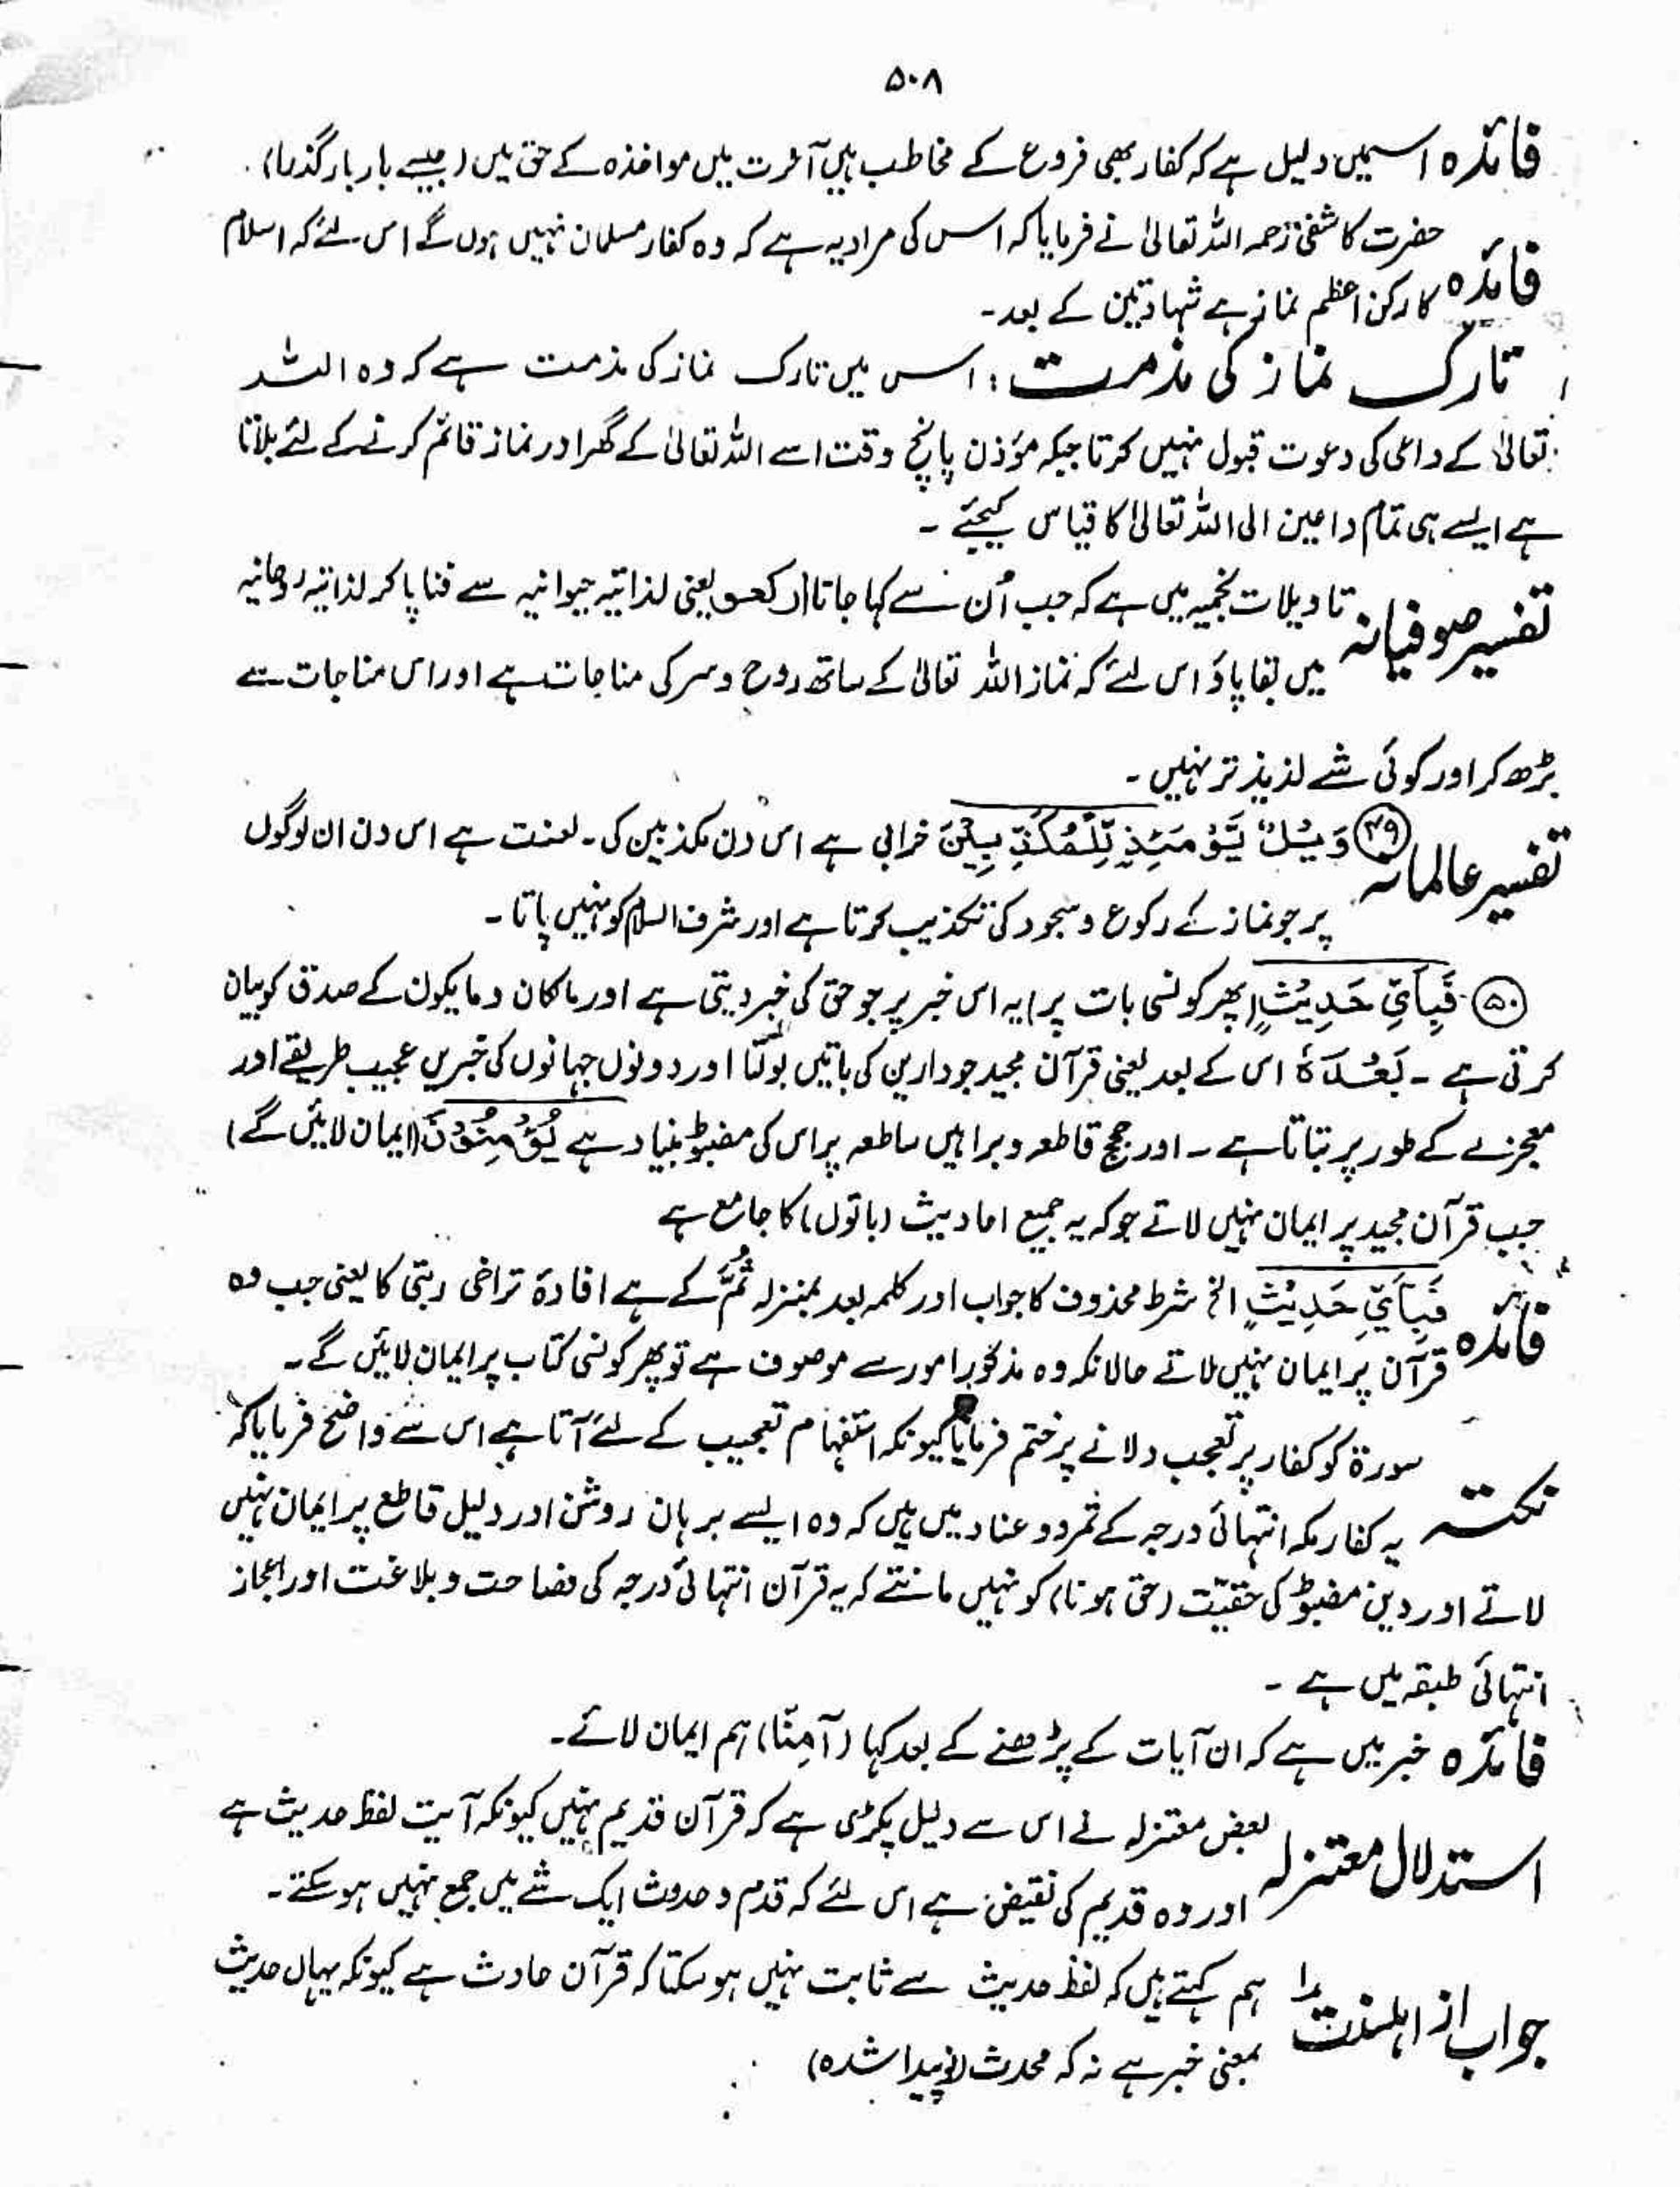 ۵۰۸
فائدہ اسمیں دلیل ہے کہ کفار بھی فروع کے مخاطب ہیں آخرت میں مواخذہ کے حق میں (جیسے بار بار گذرا)۔
حضرت کاشفی رحمہ اللہ تعالیٰ نے فرمایا کہ اس کی مراد یہ ہے کہ وہ کفار مسلمان نہیں ہوں گے اس لئے کہ اسلام
فائدہ کا رکن اعظم نماز ہے شہادتین کے بعد۔
تارک نماز کی مذمت: اس میں تارک نماز کی مذمت ہے کہ وہ اللہ
تعالیٰ کے داعی کی دعوت قبول نہیں کرتا جبکہ مؤذن پانچ وقت اسے اللہ تعالیٰ کے گھر اور نماز قائم کرنے کے لئے بلاتا
ہے ایسے ہی تمام داعین الی اللہ تعالیٰ کا قیاس کیجئے ۔
تفسیر صوفیانہ تاویلات نجمیہ میں ہے کہ جب اُن سے کہا جاتا ارکعوا یعنی لذاتیہ حیوانیہ سے فنا پا کر لذاتیہ روحانیہ
میں بقا پاؤ اس لئے کہ نماز اللہ تعالیٰ کے ساتھ روح و سر کی مناجات ہے اور اس مناجات سے
بڑھ کر اور کوئی شے لذیذ تر نہیں ۔
تفسیر عالمانہ ۴۹ وَيْلٌ يَّوْمَئِذٍ لِّلْمُكَذِّبِيْنَ خرابی ہے اس دن مکذبین کی۔ لعنت ہے اس دن ان لوگوں
پر جو نماز کے رکوع و سجود کی تکذیب کرتا ہے اور شرف السلام کو نہیں پاتا ۔
۵۰ فَبِأَيِّ حَدِيْثٍ (پھر کونسی بات پر) یہ اس خبر پر جو حق کی خبر دیتی ہے اور ماکان و مایکون کے صدق کو بیان
کرتی ہے ۔ بَعْدَهٗ اس کے بعد یعنی قرآن مجید جو دارین کی باتیں بولتا اور دونوں جہانوں کی خبریں عجیب طریقے اور
معجزے کے طور پر بتاتا ہے ۔ اور حجج قاطعہ و براہین ساطعہ پر اس کی مضبوط بنیاد ہے يُؤْمِنُوْنَ (ایمان لائیں گے)
جب قرآن مجید پر ایمان نہیں لاتے جو کہ یہ جمیع احادیث (باتوں) کا جامع ہے
فائدہ فَبِأَيِّ حَدِيْثٍ الخ شرط محذوف کا جواب اور کلمہ بعد بمنزلہ ثُمَّ کے ہے افادۃ تراخی رتبی کا یعنی جب وہ
قرآن پر ایمان نہیں لاتے حالانکہ وہ مذکورہ امور سے موصوف ہے تو پھر کونسی کتاب پر ایمان لائیں گے ۔
سورۃ کو کفار پر تعجب دلانے پر ختم فرمایا کیونکہ استفہام تعجیب کے لئے آتا ہے اس سے واضح فرمایا کہ
نکتہ یہ کفار مکہ انتہائی درجہ کے تمرد و عناد میں ہیں کہ وہ ایسے برہان روشن اور دلیل قاطع پر ایمان نہیں
لاتے اور دین مضبوط کی حقیّت (حق ہونا) کو نہیں مانتے کہ یہ قرآن انتہائی درجہ کی فصاحت و بلاغت اور اعجاز
انتہائی طبقہ میں ہے ۔
فائدہ خبر میں ہے کہ ان آیات کے پڑھنے کے بعد کہا (آمنّا) ہم ایمان لائے۔
استدلال معتزلہ بعض معتزلہ نے اس سے دلیل پکڑی ہے کہ قرآن قدیم نہیں کیونکہ آیت لفظ حدیث ہے
اور وہ قدیم کی نقیض ہے اس لئے کہ قدم و حدوث ایک شے میں جمع نہیں ہو سکتے۔
جواب از اہلسنت ۱ ہم کہتے ہیں کہ لفظ حدیث سے ثابت نہیں ہو سکتا کہ قرآن حادث ہے کیونکہ یہاں حدیث
بمعنی خبر ہے نہ کہ محدث (نوپیدا شدہ)